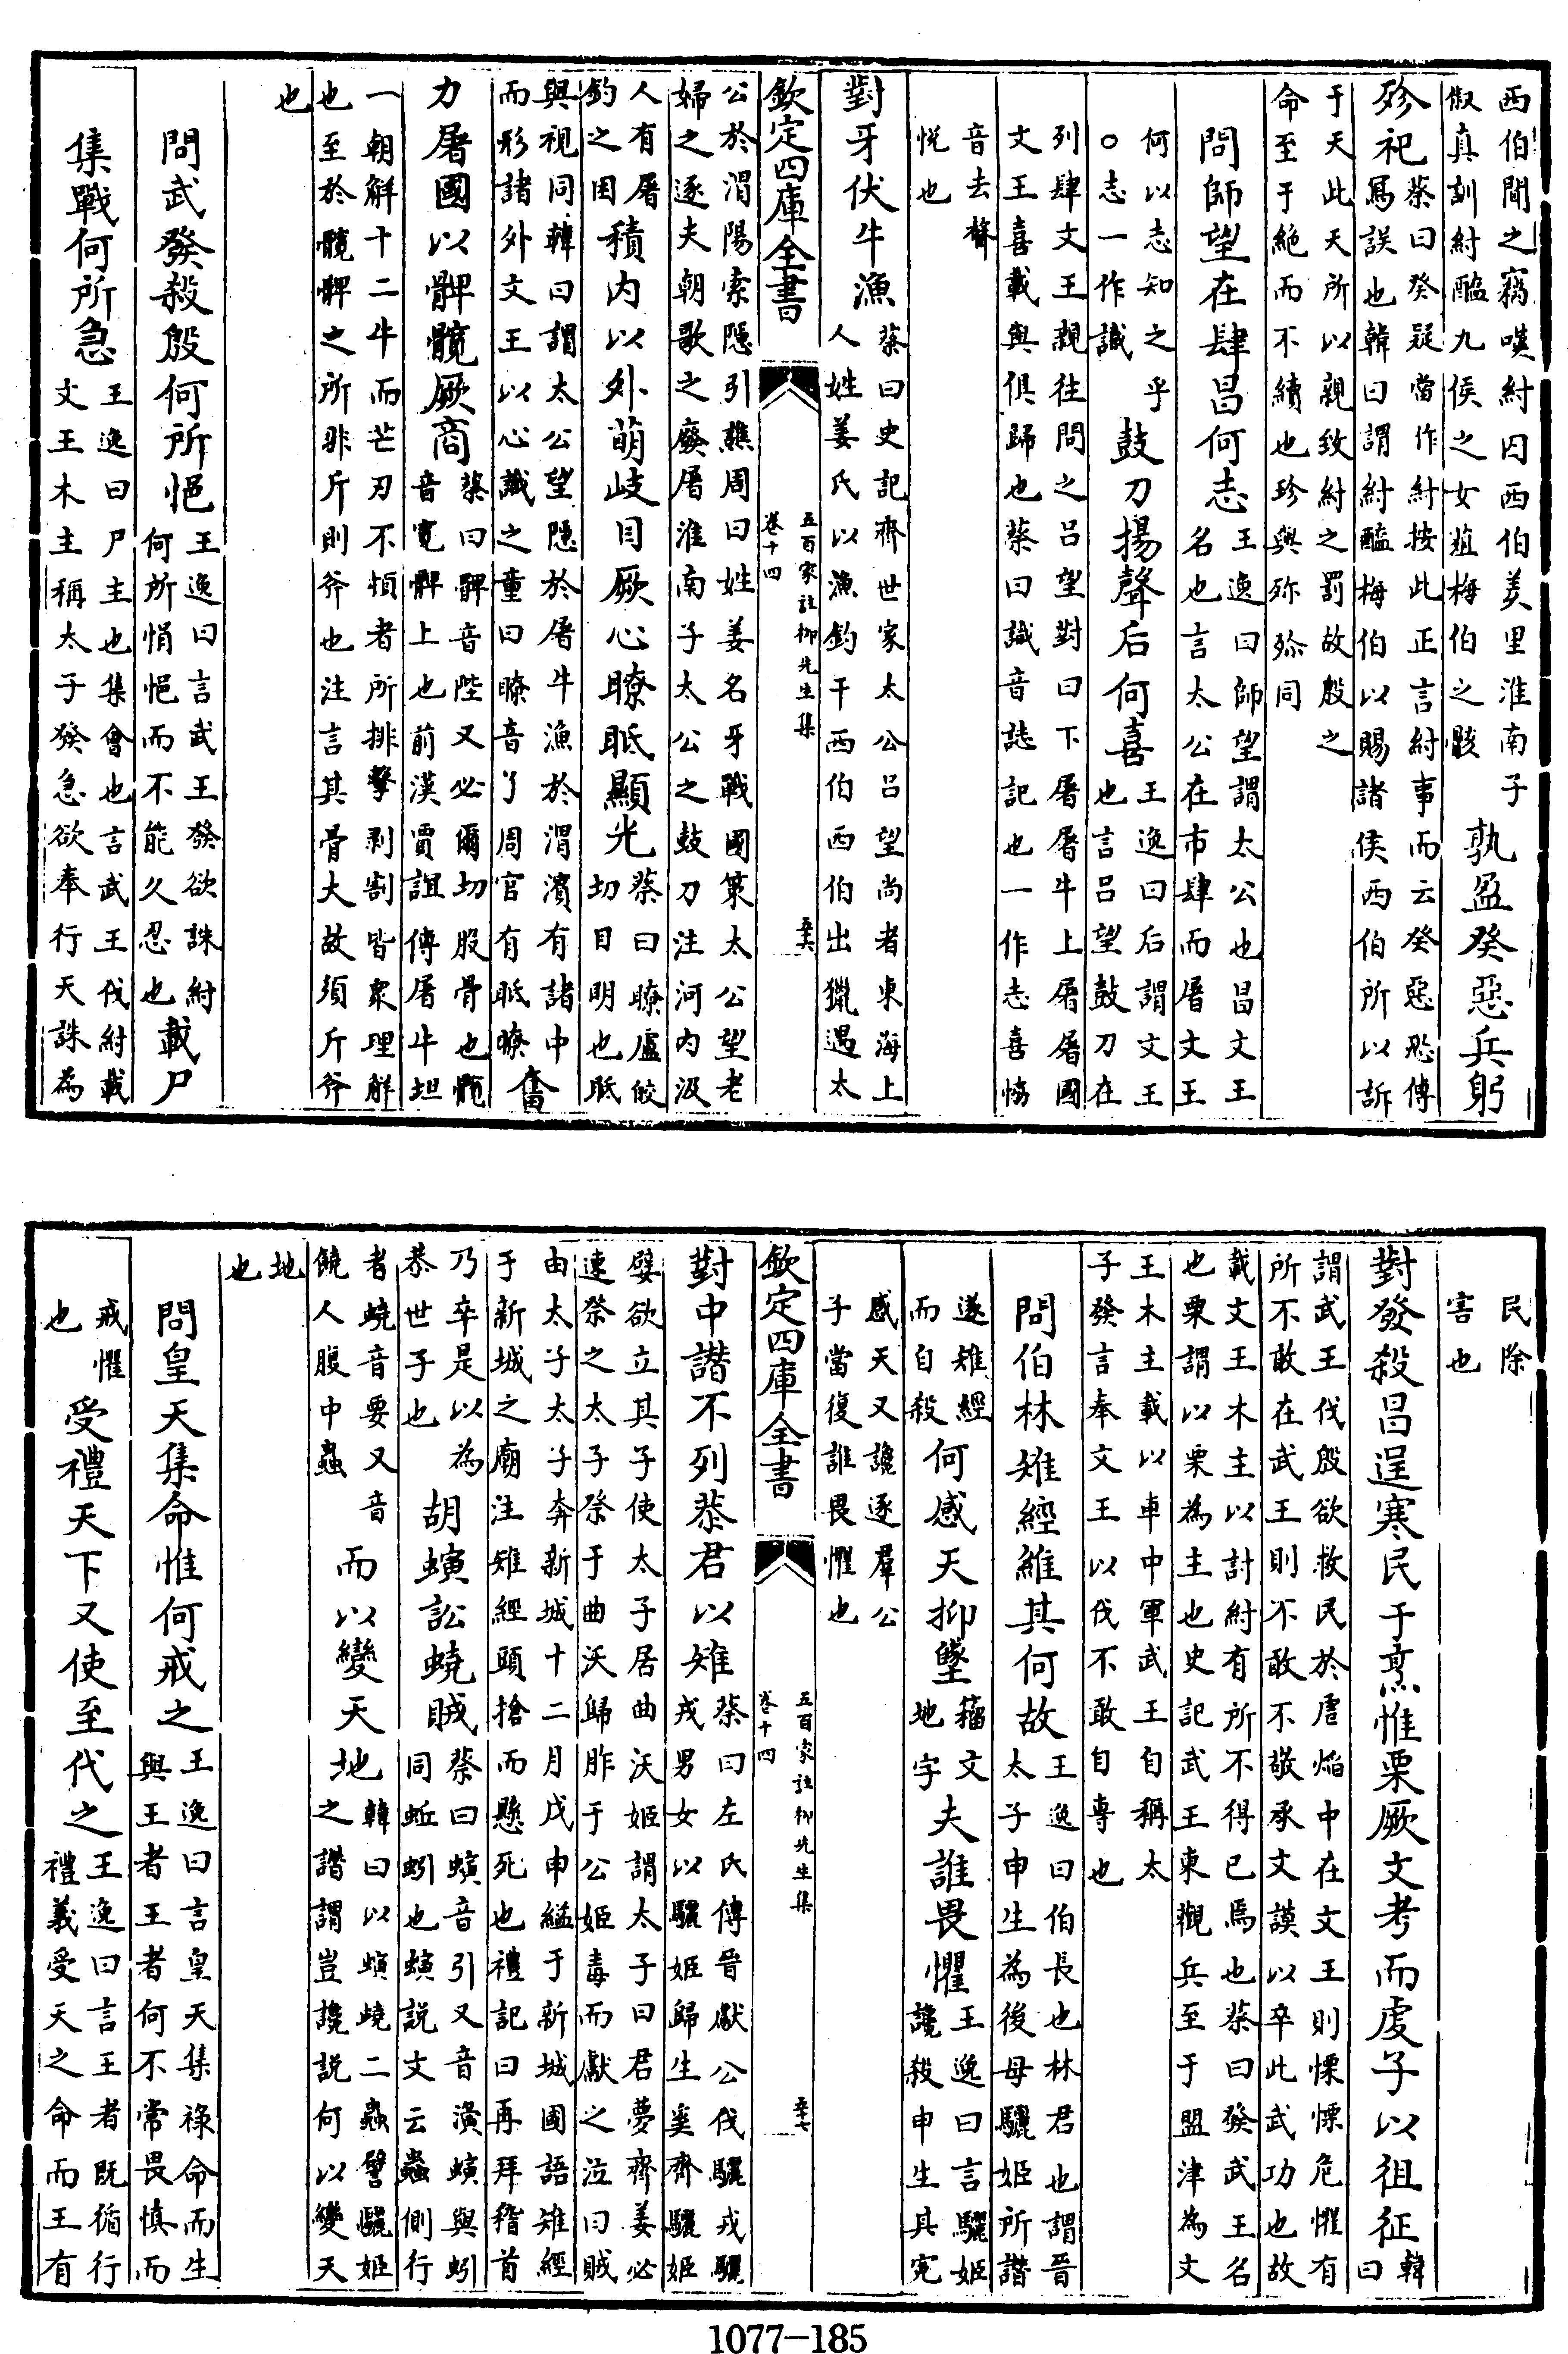 西伯聞之竊嘆紂囚西伯羑里淮南子
俶真訓紂醢九侯之女葅梅伯之骸
孰盈癸惡兵躬
殄祀
蔡曰癸疑當作紂按此正言紂事而云癸惡恐傳
寫誤也韓曰謂紂醢梅伯以賜諸侯西伯所以訴
于天此天所以親致紂之罰故殷之
命至于絶而不續也珍與殄同
問師望在肆昌何志
王逸曰師望謂太公也昌文王
名也言太公在市肆而屠文王
何以志知之乎
○志一作識
鼓刀揚聲后何喜
王逸曰后謂文王
也言吕望鼓刀在
列肆文王親往問之吕望對曰下屠屠牛上屠屠國
文王喜載與俱歸也蔡曰識音誌記也一作志喜協
音去聲
悦也
對牙伏牛漁
蔡曰史記齊世家太公吕望尚者東海上
人姓姜氏以漁釣干西伯西伯出獵遇太
欽定四庫全書
五百家註柳先生集
卷十四
五六
公於渭陽索隱引譙周曰姓姜名牙戰國策太公望老
婦之逐夫朝歌之廢屠淮南子太公之鼓刀注河内汲
人有屠
釣之困
積内以外萌岐目厥心瞭眡顯光
蔡曰瞭盧皎
切目明也眡
與視同韓曰謂太公望隱於屠牛漁於渭濱有諸中
而形諸外文王以心識之童曰瞭音了周官有眡瞭
奮
力屠國以髀髖厥商
蔡曰髀音陛又必爾切股骨也髖
音寛髀上也前漢賈誼傳屠牛坦
一朝解十二牛而芒刃不頓者所排擊剥割皆衆理解
也至於髖髀之所非斤則斧也注言其骨大故須斤斧
也
問武發殺殷何所悒
王逸曰言武王發欲誅紂
何所悁悒而不能久忍也
載尸
集戰何所急
王逸曰尸主也集會也言武王伐紂載
文王木主稱太子發急欲奉行天誅為
民除
害也
對發殺昌逞寒民于烹惟栗厥文考而虔予以徂征
韓
曰
謂武王伐殷欲救民於虐焰中在文王則慄慄危懼有
所不敢在武王則不敢不敬承文謨以卒此武功也故
載文王木主以討紂有所不得已焉也蔡曰發武王名
也栗謂以栗為主也史記武王東觀兵至于盟津為文
王木主載以車中軍武王自稱太
子發言奉文王以伐不敢自專也
問伯林雉經維其何故
王逸曰伯長也林君也謂晉
太子申生為後母驪姬所譖
遂雉經
而自殺
何感天抑墬
籀文
地字
夫誰畏懼
王逸曰言驪姬
讒殺申生其寃
感天又讒逐羣公
子當復誰畏懼也
欽定四庫全書
五百家註柳先生集
卷十四
五十七
對中譖不列恭君以雉
蔡曰左氏傳晉獻公伐驪戎驪
戎男女以驪姬歸生奚齊驪姬
嬖欲立其子使太子居曲沃姬謂太子曰君夢齊姜必
速祭之太子祭于曲沃歸胙于公姬毒而獻之泣曰賊
由太子太子奔新城十二月戊申縊于新城國語雉經
于新城之廟注雉經頭搶而懸死也禮記曰再拜稽首
乃卒是以為
恭世子也
胡螾訟蟯賊
蔡曰螾音引又音演螾與蚓
同蚯蚓也螾説文云蟲側行
者蟯音要又音
饒人腹中蟲
而以變天地
韓曰以螾蟯二蟲譬驪姬
之譖謂豈讒説何以變天
地
也
問皇天集命惟何戒之
王逸曰言皇天集禄命而生
與王者王者何不常畏慎而
戒懼
也
受禮天下又使至代之
王逸曰言王者既循行
禮義受天之命而王有
1077-185